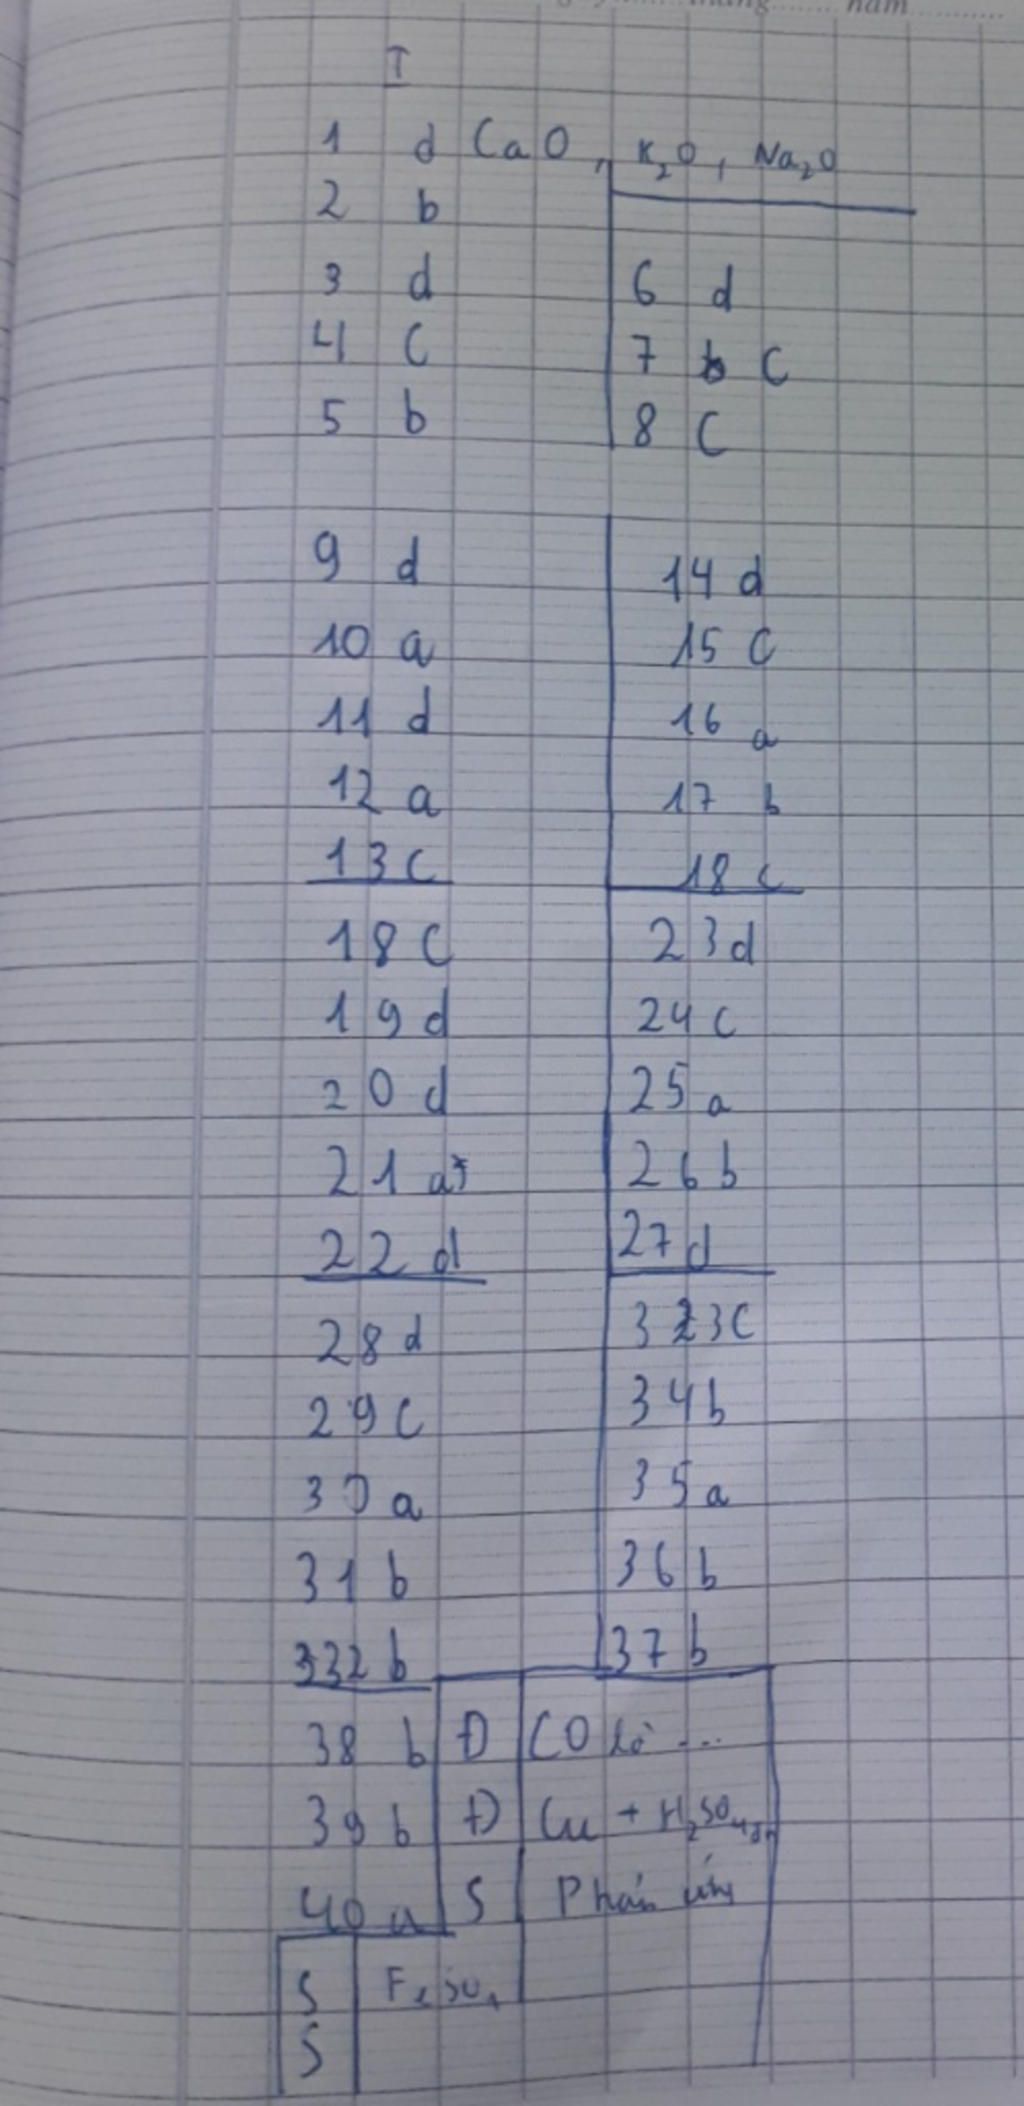 năm
I
1 d CaO, K₂O, Na₂O
2 b
3 d
4 C
5 b
6 d
7 C
8 C
9 d
10 a
11 d
12 a
13 c
14 d
15 C
16 a
17 b
18 c
18 C
19 d
20 d
21 a
22 d
23 d
24 c
25 a
26 b
27 d
28 d
29 C
30 a
31 b
32 b
33 C
34 b
35 a
36 b
37 b
38 b Đ CO là ...
39 b Đ Cu + H₂SO₄
40 a S Phản ứng
S FeSO₄
S